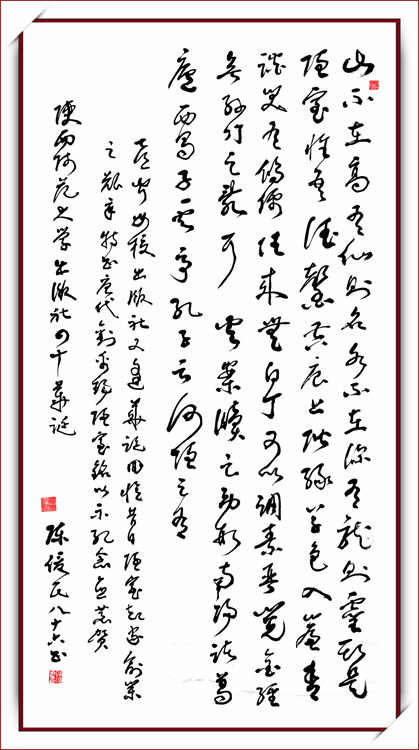 山不在高有仙则名水不在深有龙则灵斯是
陋室惟吾德馨苔痕上阶绿草色入帘青
谈笑有鸿儒往来無白丁可以调素琴阅金经
无丝竹之乱耳无案牍之劳形南阳诸葛
庐西蜀子云亭孔子云何陋之有
喜闻母校出版社又逢华诞回忆昔日陋室起家创业
之艰辛特书唐代刘禹锡陋室铭以示纪念並恭贺
陕西师范大学出版社四十华诞
陈俊民八十六书